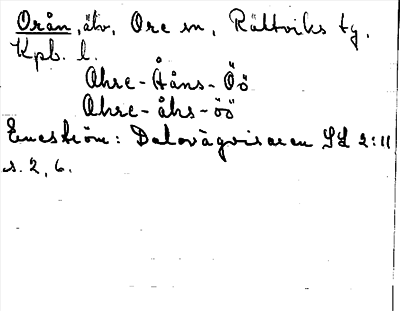 Orån, älv, Ore sn, Rättviks tg,
Kpb. l.
Ahre-Ååns-Öö
Ahre-åhs-öö
Eneström: Dalovägvisaren SL 2:11
s. 2, 6.